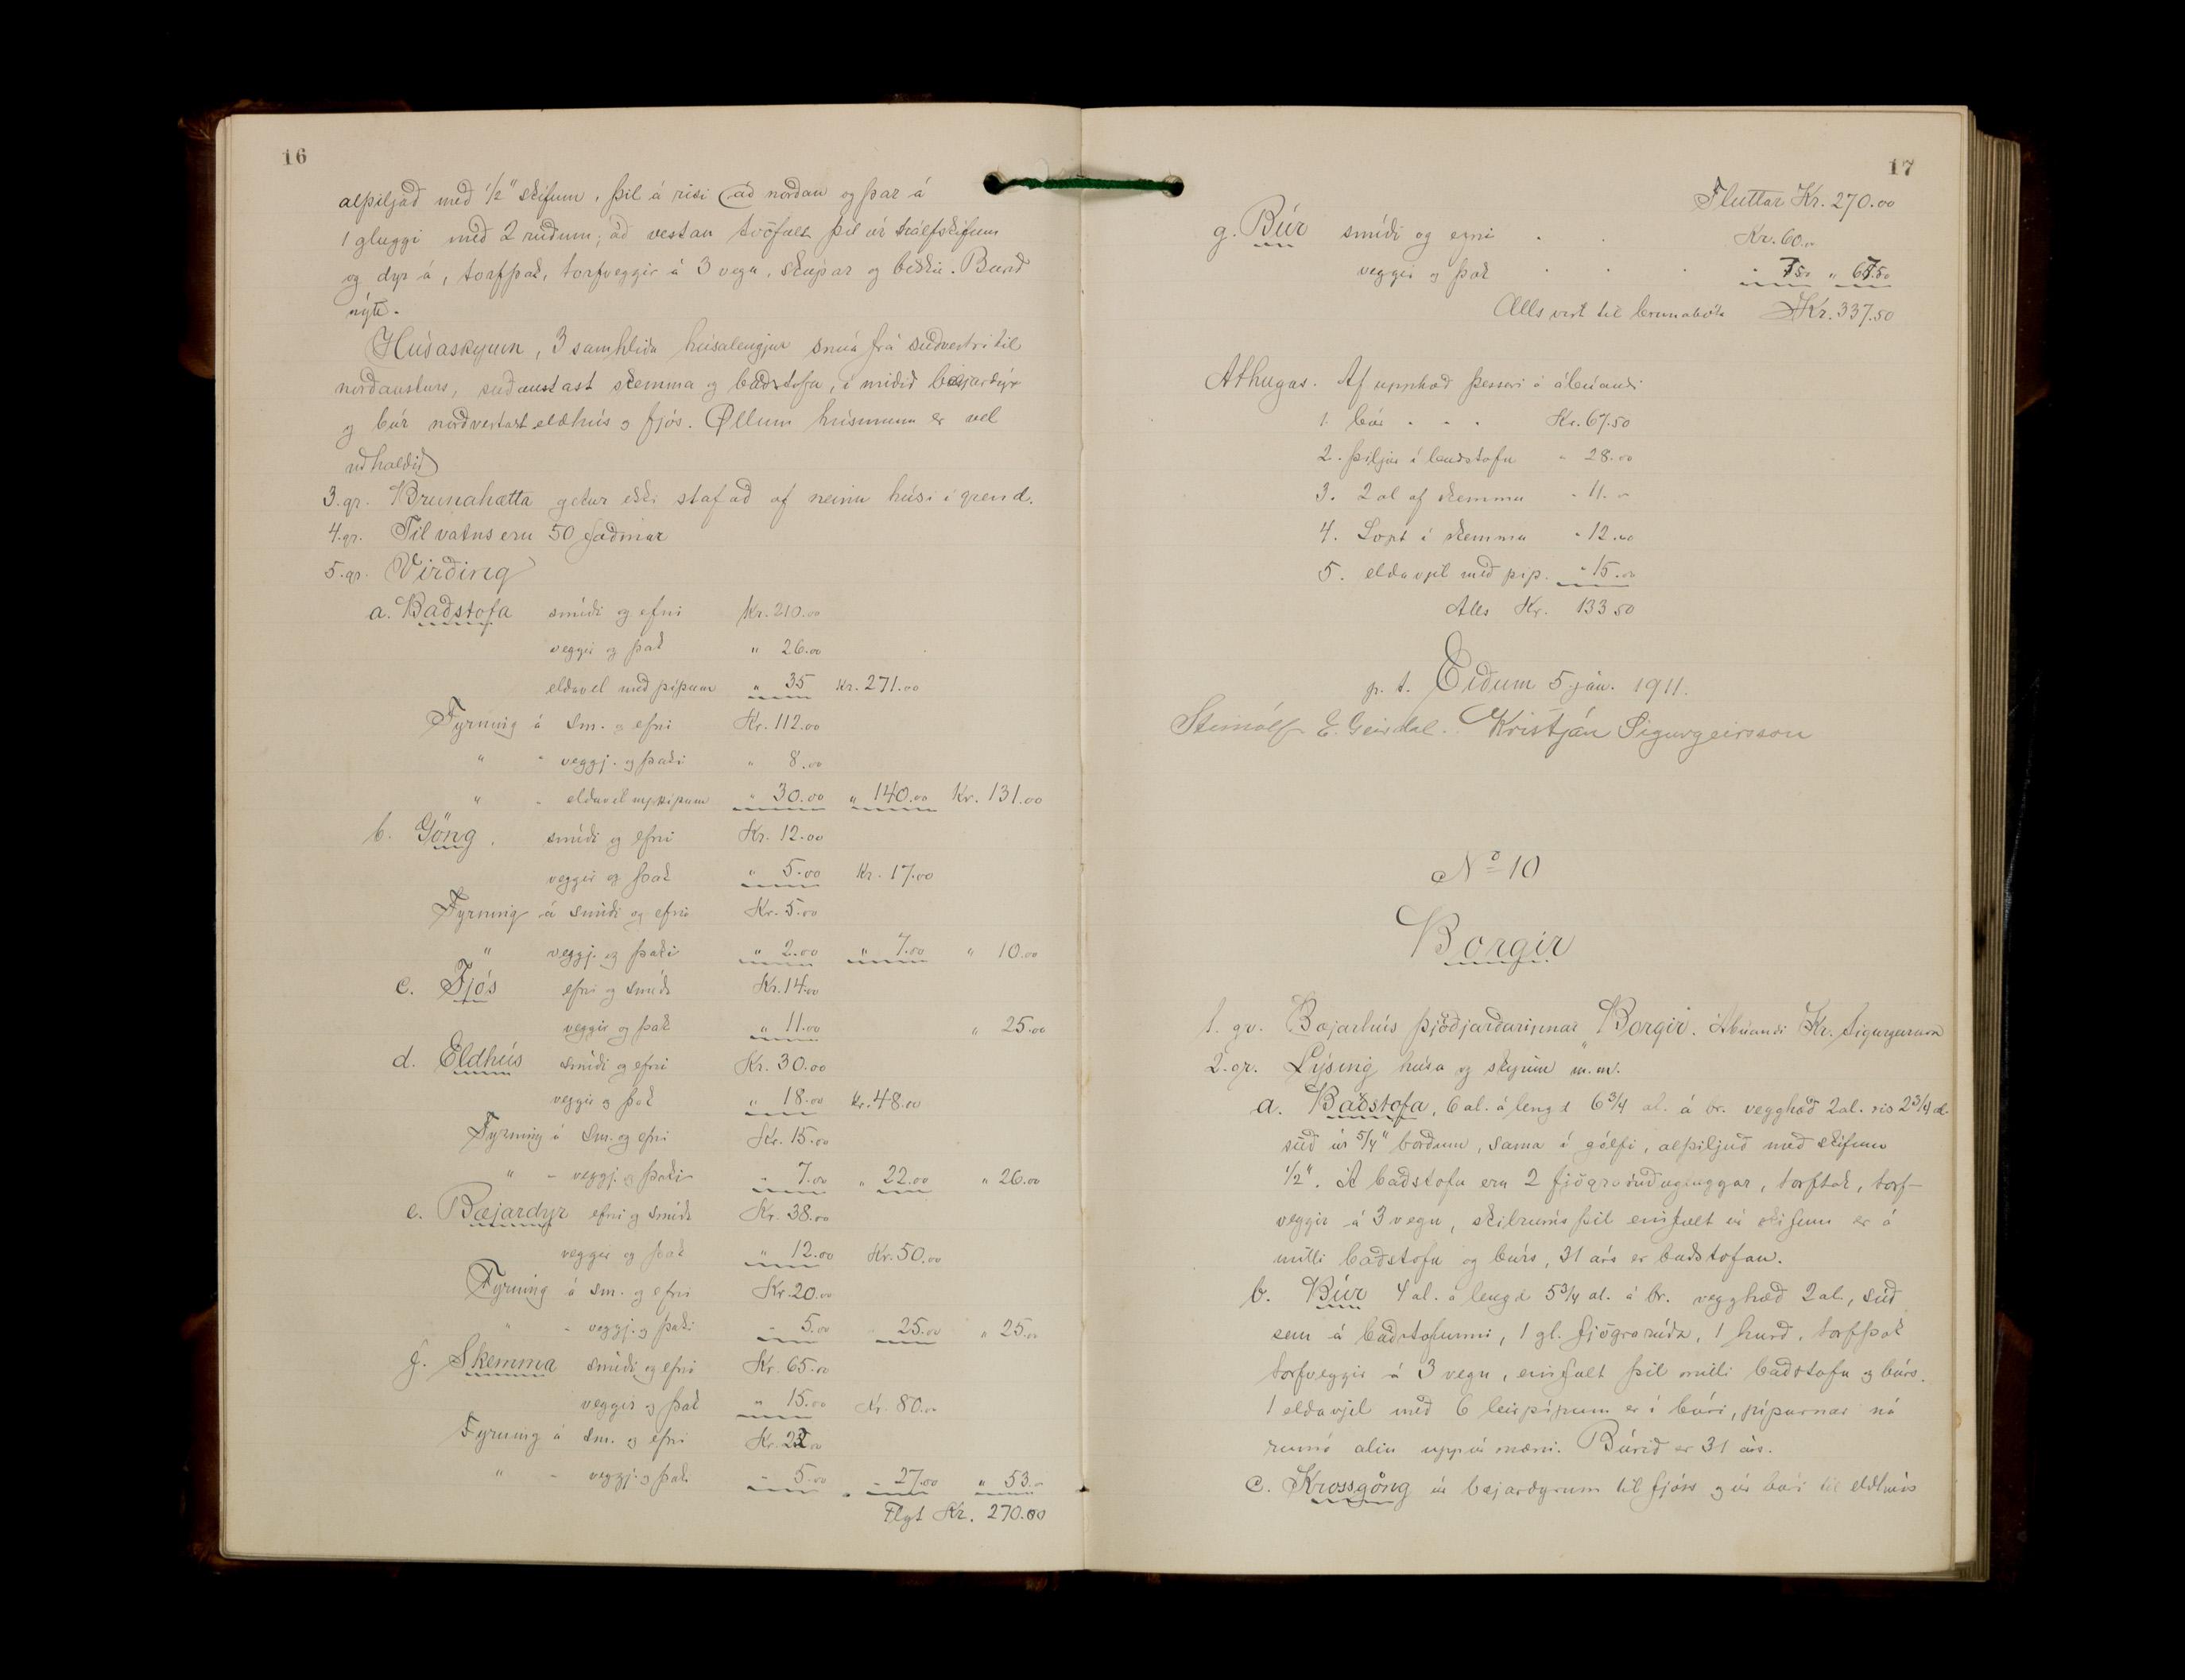 16
alþiljað með 1/2" skífum, þil á risi að norðan og þar á
1 gluggi með 2 rúðum; að vestan tvöfalt þil úr hálfskífum
og dyr á, torfþak, torfveggir á 3 vegu, skápar og bekkir. Búrið
nýtt.
Húsaskipun, 3 samhliða húsalengjur snúa frá suðvestri til
norðausturs, suðaustast skemma og baðstofa, í miðið bæjardyr
og búr norðvestast eldhús og fjós. Øllum húsunum er vel
við haldið
3. gr. Brunahætta getur ekki stafað af neinu húsi í grend.
4. gr. Til vatns eru 50 faðmar
5. gr. Virðing
a. Baðstofa smíði og efni Kr. 210.00
veggir og þak " 26.00
eldavel með pípum " 35 Kr. 271.00
Fyrning á sm. og efni Kr. 112.00
" - veggj. og þaki " 8.00
" - eldavel m pípum " 30.00 " 140.00 Kr. 131.00
b. Göng. smíði og efni Kr. 12.00
veggir og þak " 5.00 Kr. 17.00
Fyrning á smíði og efni Kr. 5.00
" veggj. og þaki " 2.00 " 7.00 " 10.00
c. Fjós efni og smíði Kr. 14.00
veggir og þak " 11.00 " 25.00
d. Eldhús smíði og efni Kr. 30.00
veggir og þak " 18.00 Kr. 48.00
Fyrning á sm. og efni Kr. 15.00
" - veggj. og þaki - 7.00 " 22.00 " 26.00
e. Bæjardyr efni og smíði Kr. 38.00
veggir og þak " 12.00 Kr. 50.00
Fyrning á sm. og efni Kr. 20.00
" - veggj. og þaki - 5.00 - 25.00 " 25.00
f. Skemma smíði og efni Kr. 65.00
veggir og þak " 15.00 Kr. 80.00
Fyrning á sm. og efni Kr. 22.00
" - veggj. og þaki - 5.00 - 27.00 " 53.00
Flyt Kr. 270.00
17
Fluttar Kr. 270.00
g. Búr smíði og efni . . Kr. 60.00
veggir og þak . . . - 7.50 " 67.50
Alls virt til brunabóta Kr. 337.50
Athugas. Af upphæð þessari á ábúandi
1. búr . - . Kr. 67.50
2. þiljur í baðstofu - 28.00
3. 2 al af skemmu - 11.00
4. Lopt í skemmu - 12.00
5. eldavjel með píp. - 15.00
Alls Kr. 133.50
p. t. Eiðum 5 jan. 1911.
Steinólfr E. Geirdal. Kristján Sigurgeirsson
No 10
Borgir
1. gr. Bæjarhús þjóðjarðarinnar "Borgir. Ábúandi Kr. Sigurgeirsson
2. gr. Lýsing húsa og skipun m.m.
a. Baðstofa, 6 al. á lengd 6 3/4 al. á br. vegghæð 2 al. ris 2 3/4 al.
súð úr 5/4" borðum, sama í gólfi, alþiljuð með skífum
1/2". Á baðstofu eru 2 fjögrarúðugluggar, torfþak, torf-
veggir á 3 vegu, skilrúms þil einfalt úr skífum er á
milli baðstofu og búrs, 31 árs er baðstofan.
b. Búr 4 al. á lengd 5 3/4 al. á br. vegghæð 2 al., súð
sem á baðstofunni, 1 gl. fjögrarúða, 1 hurð, torfþak
torfveggir á 3 vegu, einfalt þil milli baðstofu og búrs.
1 eldavjel með 6 leirpípum er í búri, pípurnar ná
rúma alin uppúr mæni. Búrið er 31 árs.
c. Krossgöng úr bæjardyrum til fjóss og úr búri til eldhúss